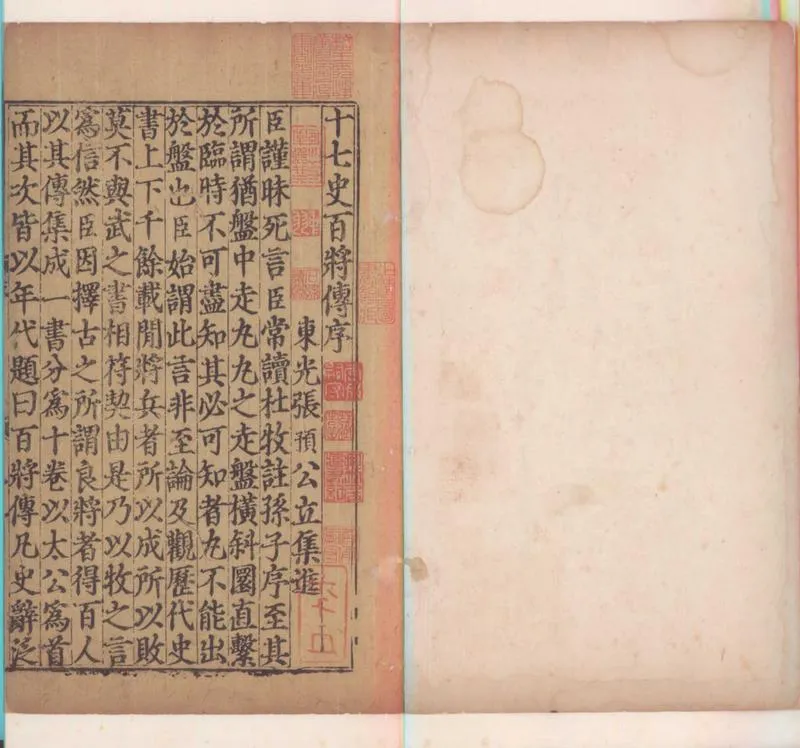 十七史百將傳序
東光張預公立集進
臣謹昧死言臣常讀杜牧註孫子序至其
所謂猶盤中走丸丸之走盤橫斜圜直繫
於臨時不可盡知其必可知者丸不能出
於盤也臣始謂此言非至論及觀歷代史
書上下千餘載閒將兵者所以成所以敗
莫不與武之書相符契由是乃以牧之言
爲信然臣因擇古之所謂良將者得百人
以其傳集成一書分爲十卷以太公爲首
而其次皆以年代題曰百將傳凡史辭泛